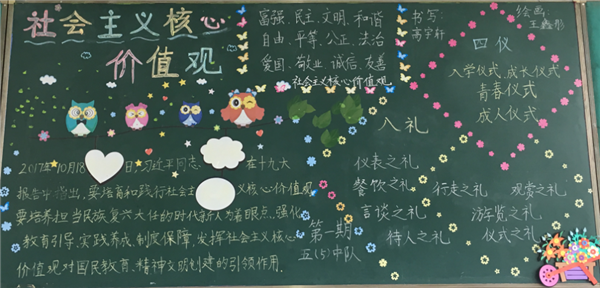 社会主义核心
价值观
富强、民主、文明、和谐
自由、平等、公正、法治
爱国、敬业、诚信、友善
社会主义核心价值观
书写:
高宇轩
绘画:
王鑫彤
四仪
入学仪式、成长仪式
青春仪式
成人仪式
八礼
仪表之礼
餐饮之礼
言谈之礼
待人之礼
行走之礼
观赏之礼
游览之礼
仪式之礼
2017年10月18日,习近平同志在十九大
报告中指出,要培育和践行社会主义核心价值观
要培养担当民族复兴大任的时代新人为着眼点,强化
教育引导、实践养成、制度保障,发挥社会主义核心
价值观对国民教育、精神文明创建的引领作用。
第一期
五(5)中队